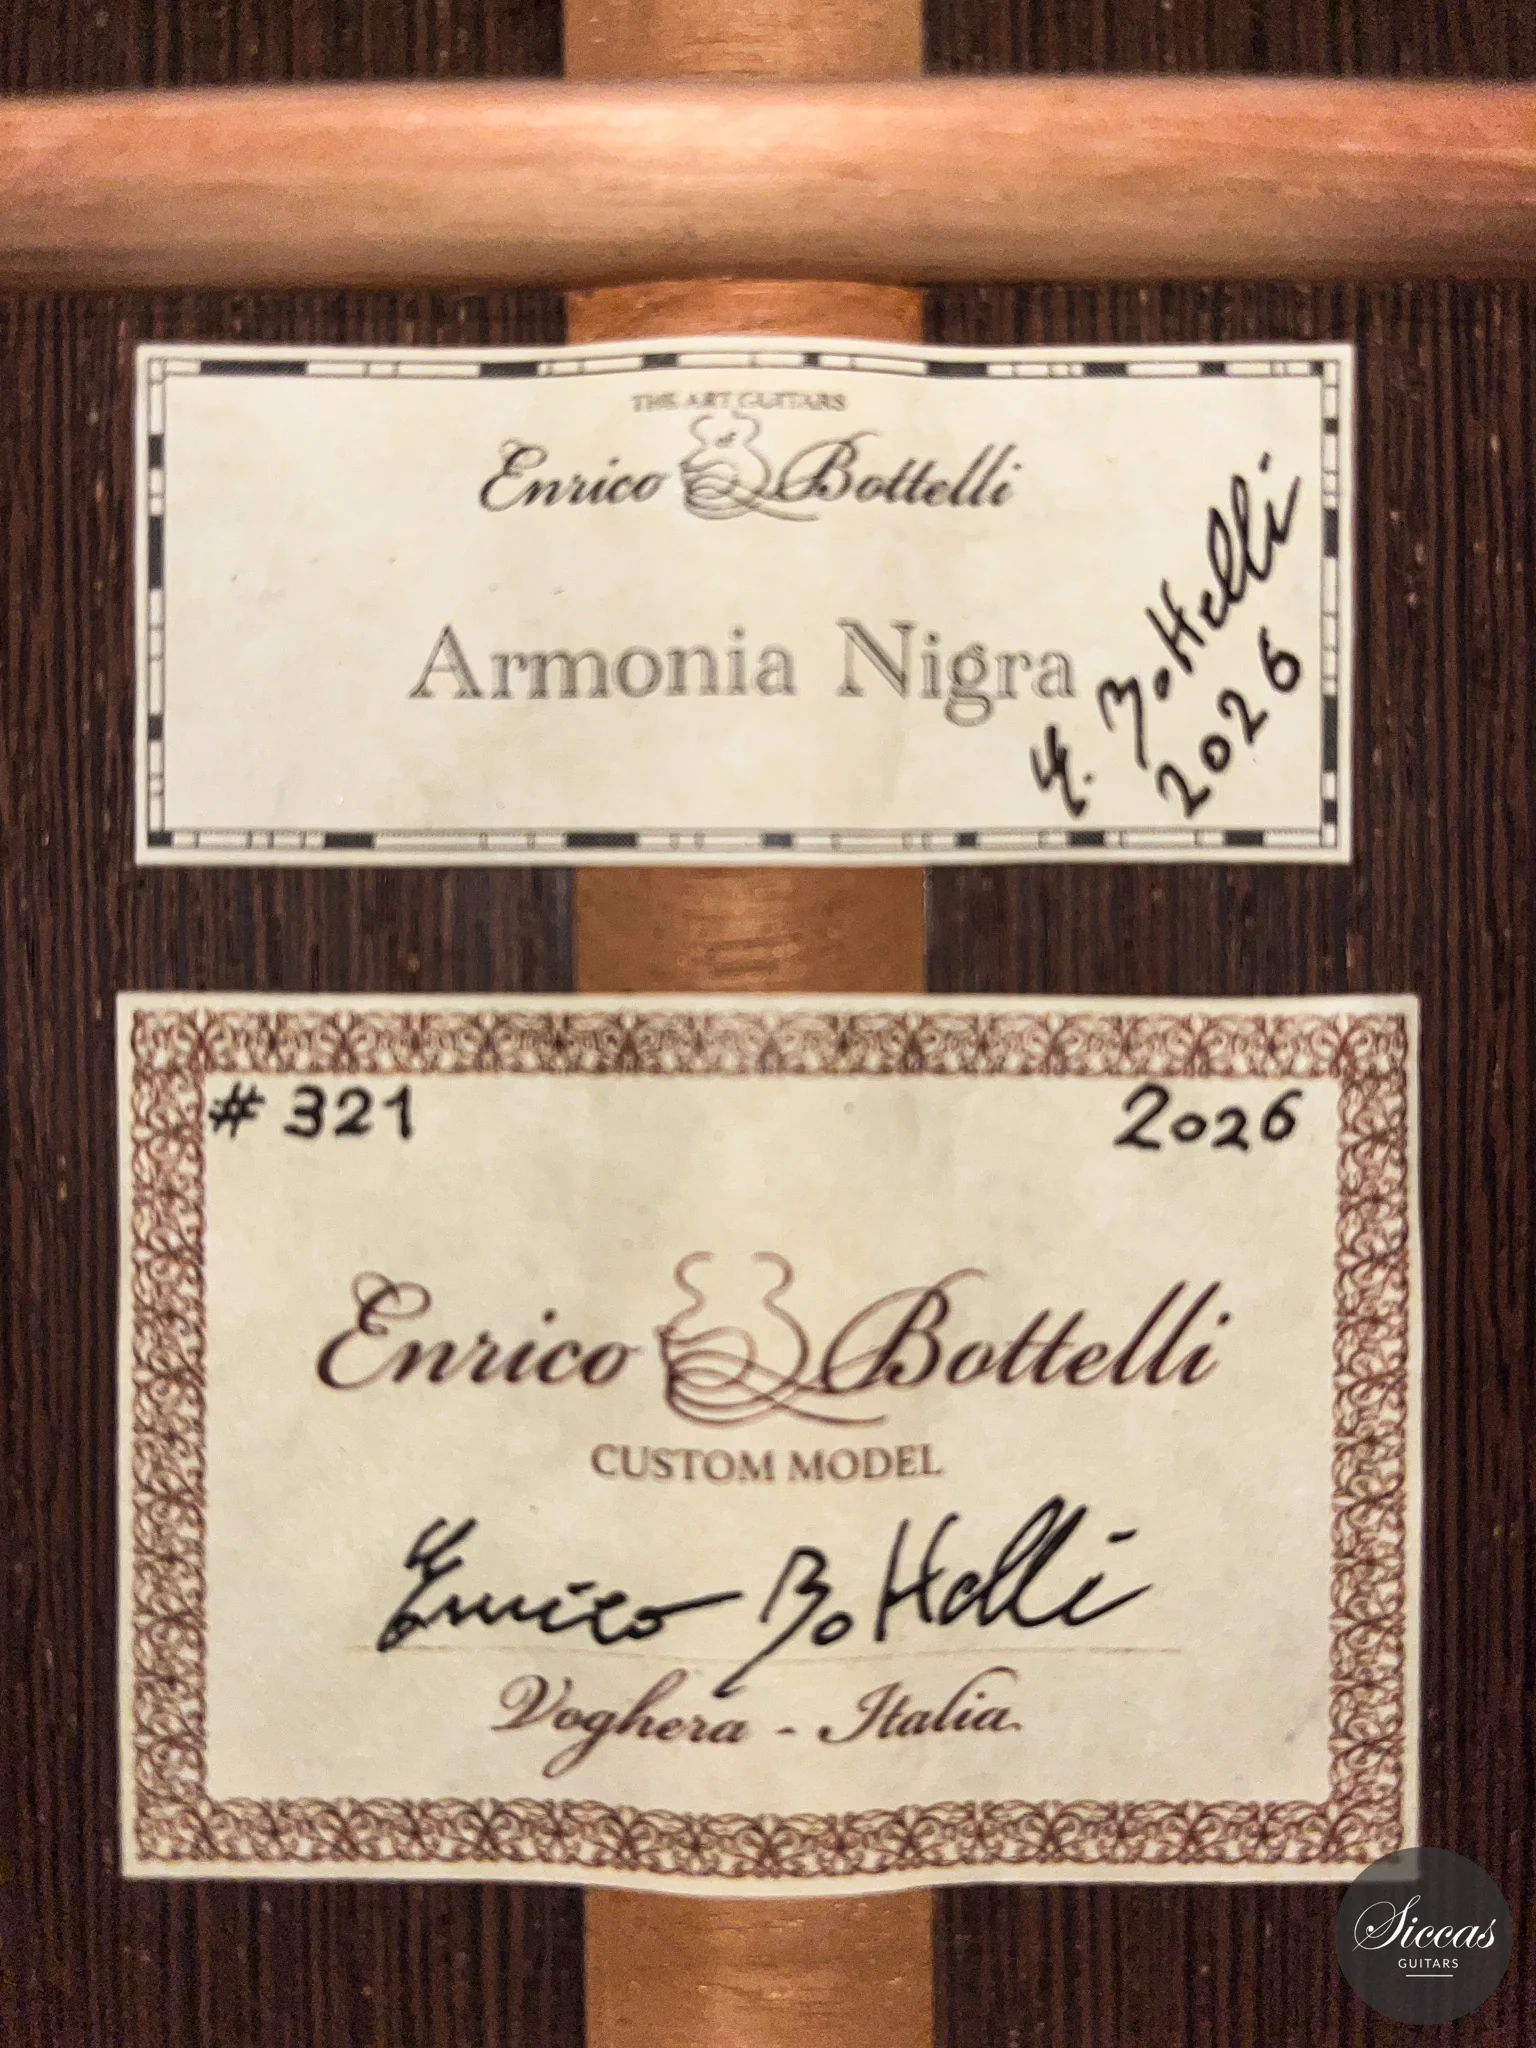 THE ART GUITARS
of
Enrico Bottelli
Armonia Nigra
E. Bottelli
2026
# 321
2026
Enrico Bottelli
CUSTOM MODEL
Enrico Bottelli
Voghera - Italia
Siccas
GUITARS